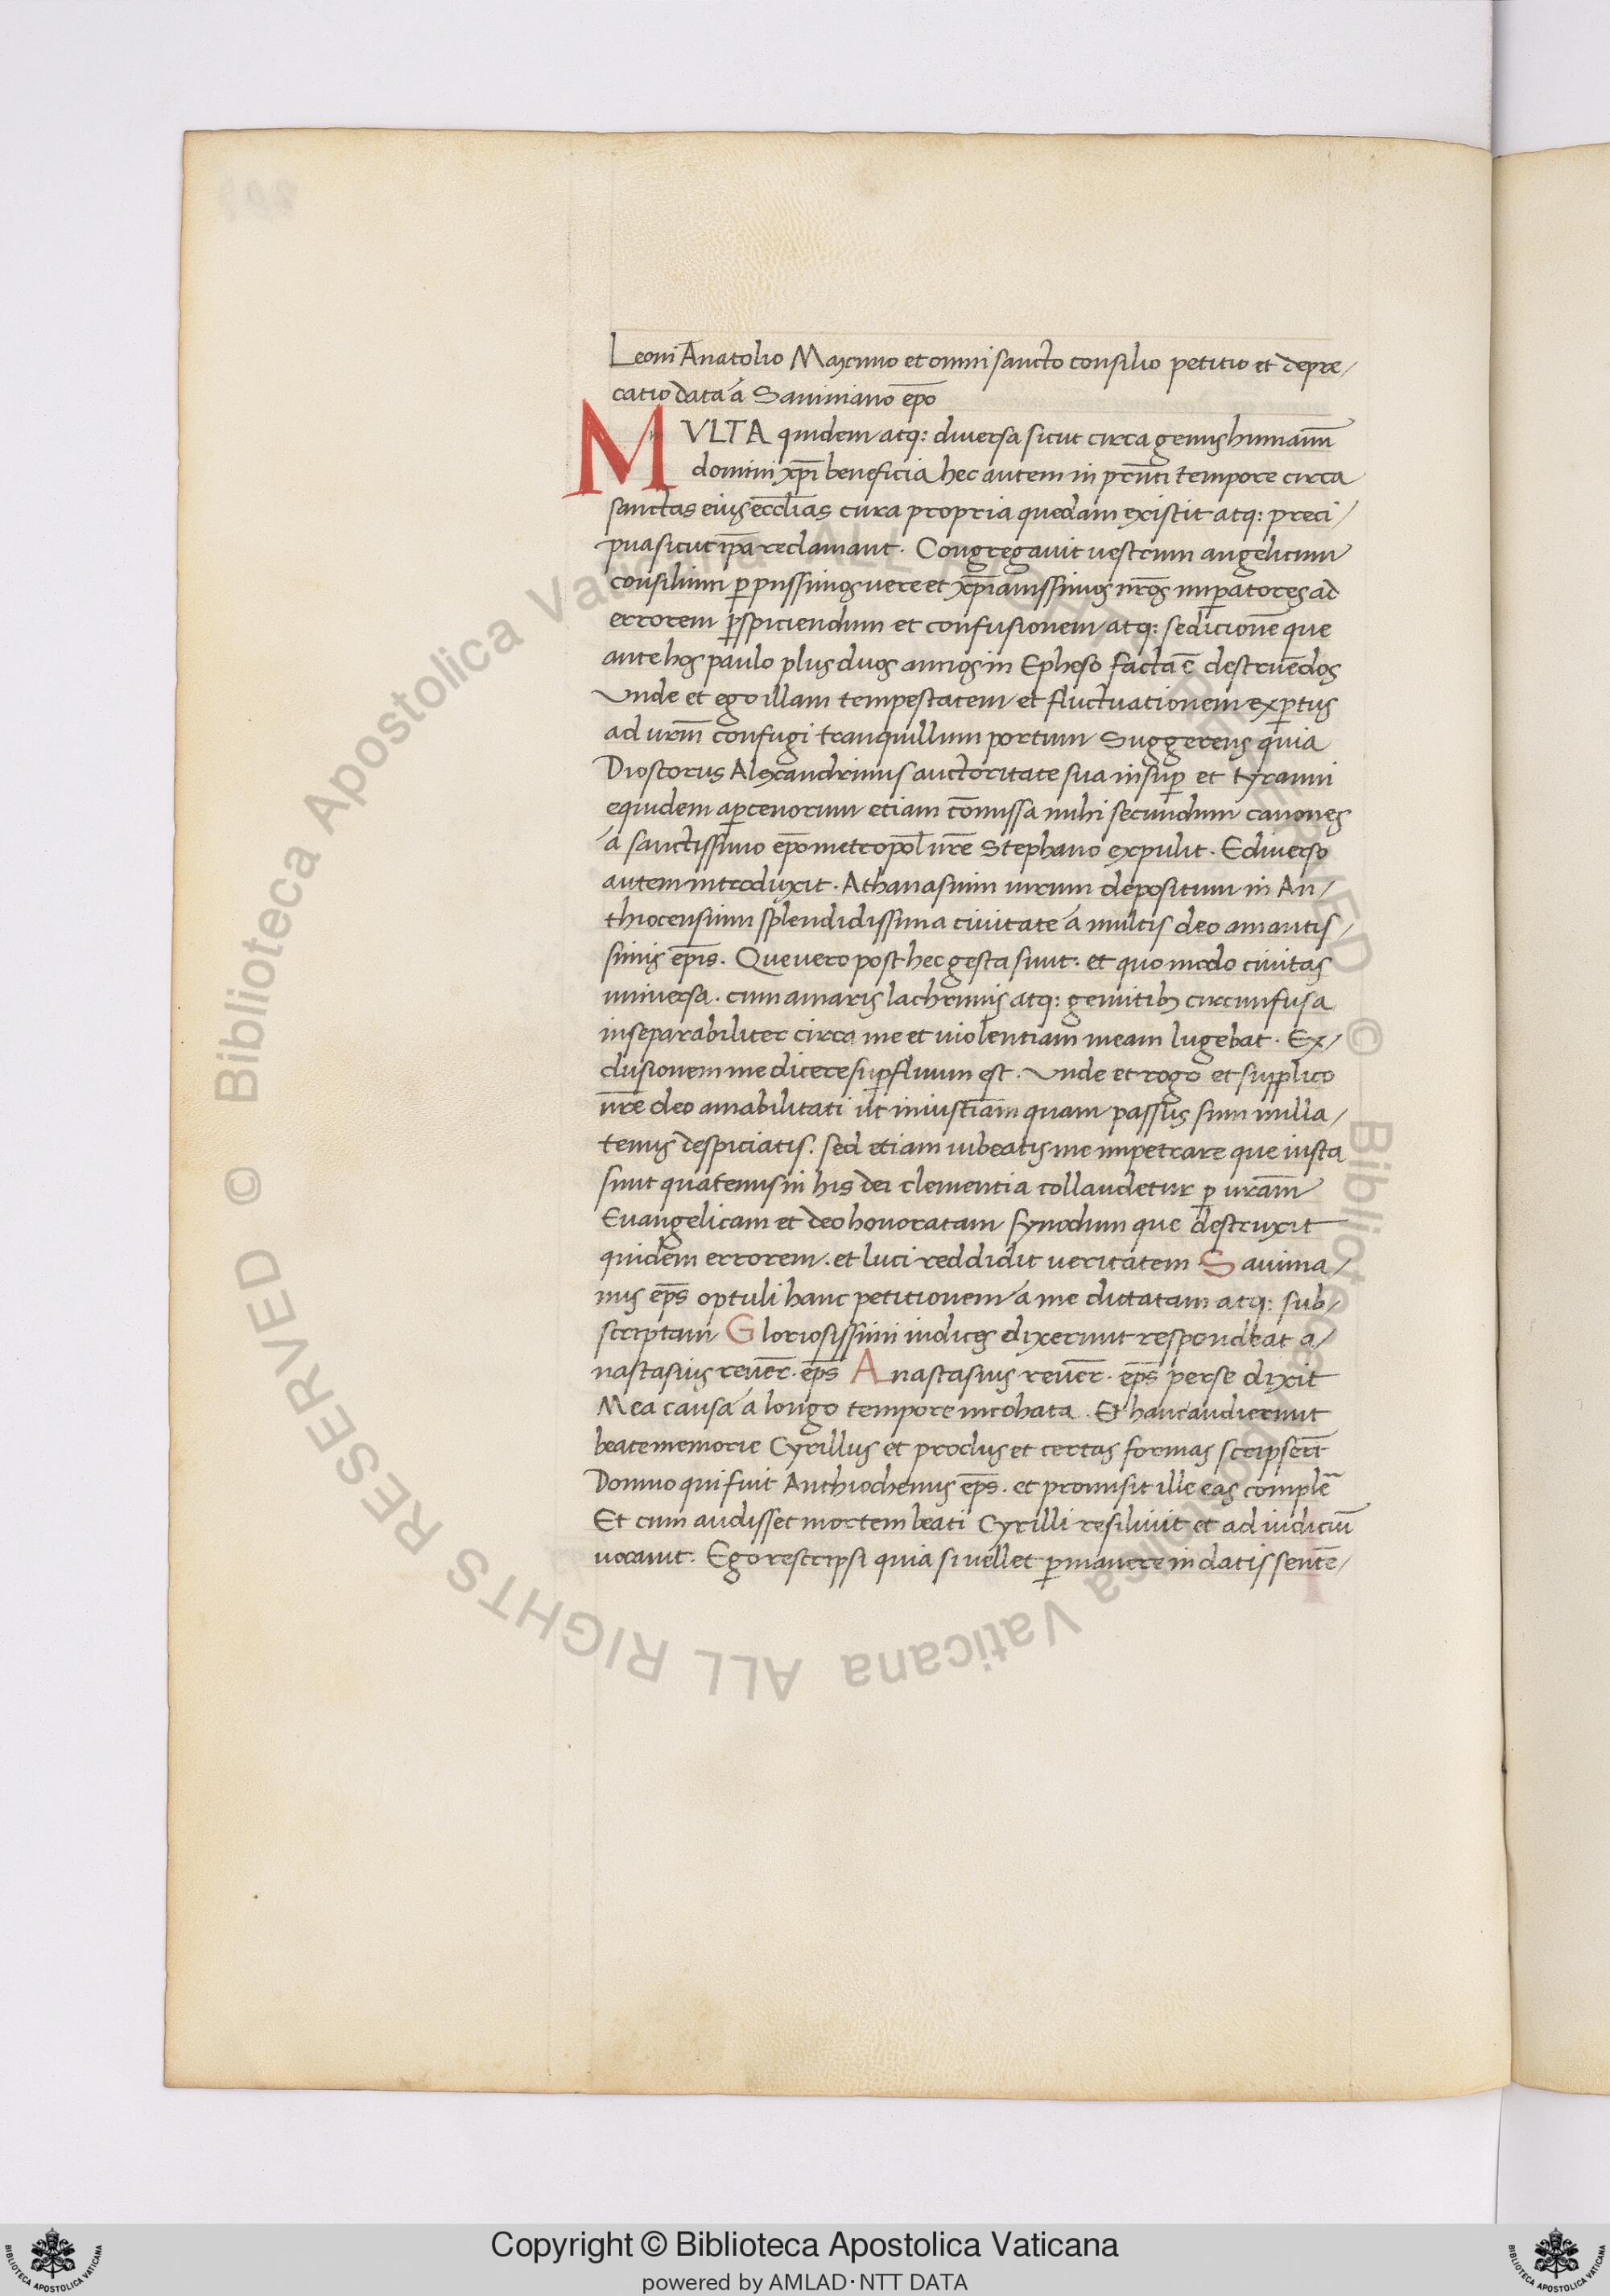 Leoni Anatolio Maximo et omni sancto consilio petitio et depre/
catio data á Saviniano ep̄o
MVLTA quidem atq: diuersa sicut circa genus humanū
domini xp̄i beneficia hec autem in pr̄nti tempore circa
sanctas eius eccl̄ias cura propria quedam existit atq: preci/
pua sicut ip̄a reclamant. Congregauit uestrum angelicum
consilium p̱ piissimos uere et xp̄ianissimos nr̄os imp̱atores ad
errorem p̱spiciendum et confusionem atq: sedicionē que
ante hos paulo plus duos annos in Epheso facta ē destruēdos
Vnde et ego illam tempestatem et fluctuationem exp̱tus
ad urm̄ confugi tranquillum portum Suggerens quia
Dioscorus Alexandrinus auctoritate sua insup̱ et tyranni
equidem ap̱cenorum etiam cōmissa mihi secundum canones
á sanctissimo ep̄o metropol̄ ur̄e Stephano expulit. Ediuerso
autem introduxit. Athanasium uirum depositum in An/
thiocensium splendidissima ciuitate á multis deo amantis/
simis ep̄is. Que uero post hec gesta sunt. et quo modo ciuitas
uniuersa. cum amaris lachrimis atq: gemitibꝫ circumfusa
inseparabiliter circa me et uiolentiam meam lugebat. Ex/
clusionem me dicere sup̱fluum est. Vnde et rogo et supplico
ur̄e deo amabilitati ut iniustiam quam passus sum nulla/
tenus despiciatis. sed etiam iubeatis me impetrare que iusta
sunt quatenus in his dei clementia collaudetur p̱ urām
Euangelicam et deo honoratam synodum que destruxit
quidem errorem. et luci reddidit ueritatem. Sauinia/
nus ep̄s optuli hanc petitionem á me dictatam atq: sub/
scriptam Gloriosissimi iudices dixerunt respondeat a/
nastasius reuer̄. ep̄s Anastasius reuer̄. ep̄s perse dixit
Mea causa á longo tempore incohata. Et hanc audierunt
beate memorie Cyrillus et proclus et certas formas scripsert̄
Domno qui fuit Anthiochenus ep̄s. et promisit ille eas complē
Et cum audisset mortem beati Cyrilli resiliuit et ad iudiciū
uocauit. Ego rescripsi quia si uellet p̱manere in datis sentē/
Copyright © Biblioteca Apostolica Vaticana
powered by AMLAD·NTT DATA
© Biblioteca Apostolica Vaticana ALL RIGHTS RESERVED © Biblioteca Apostolica Vaticana ALL RIGHTS RESERVED
BIBLIOTECA APOSTOLICA VATICANA
BIBLIOTECA APOSTOLICA VATICANA